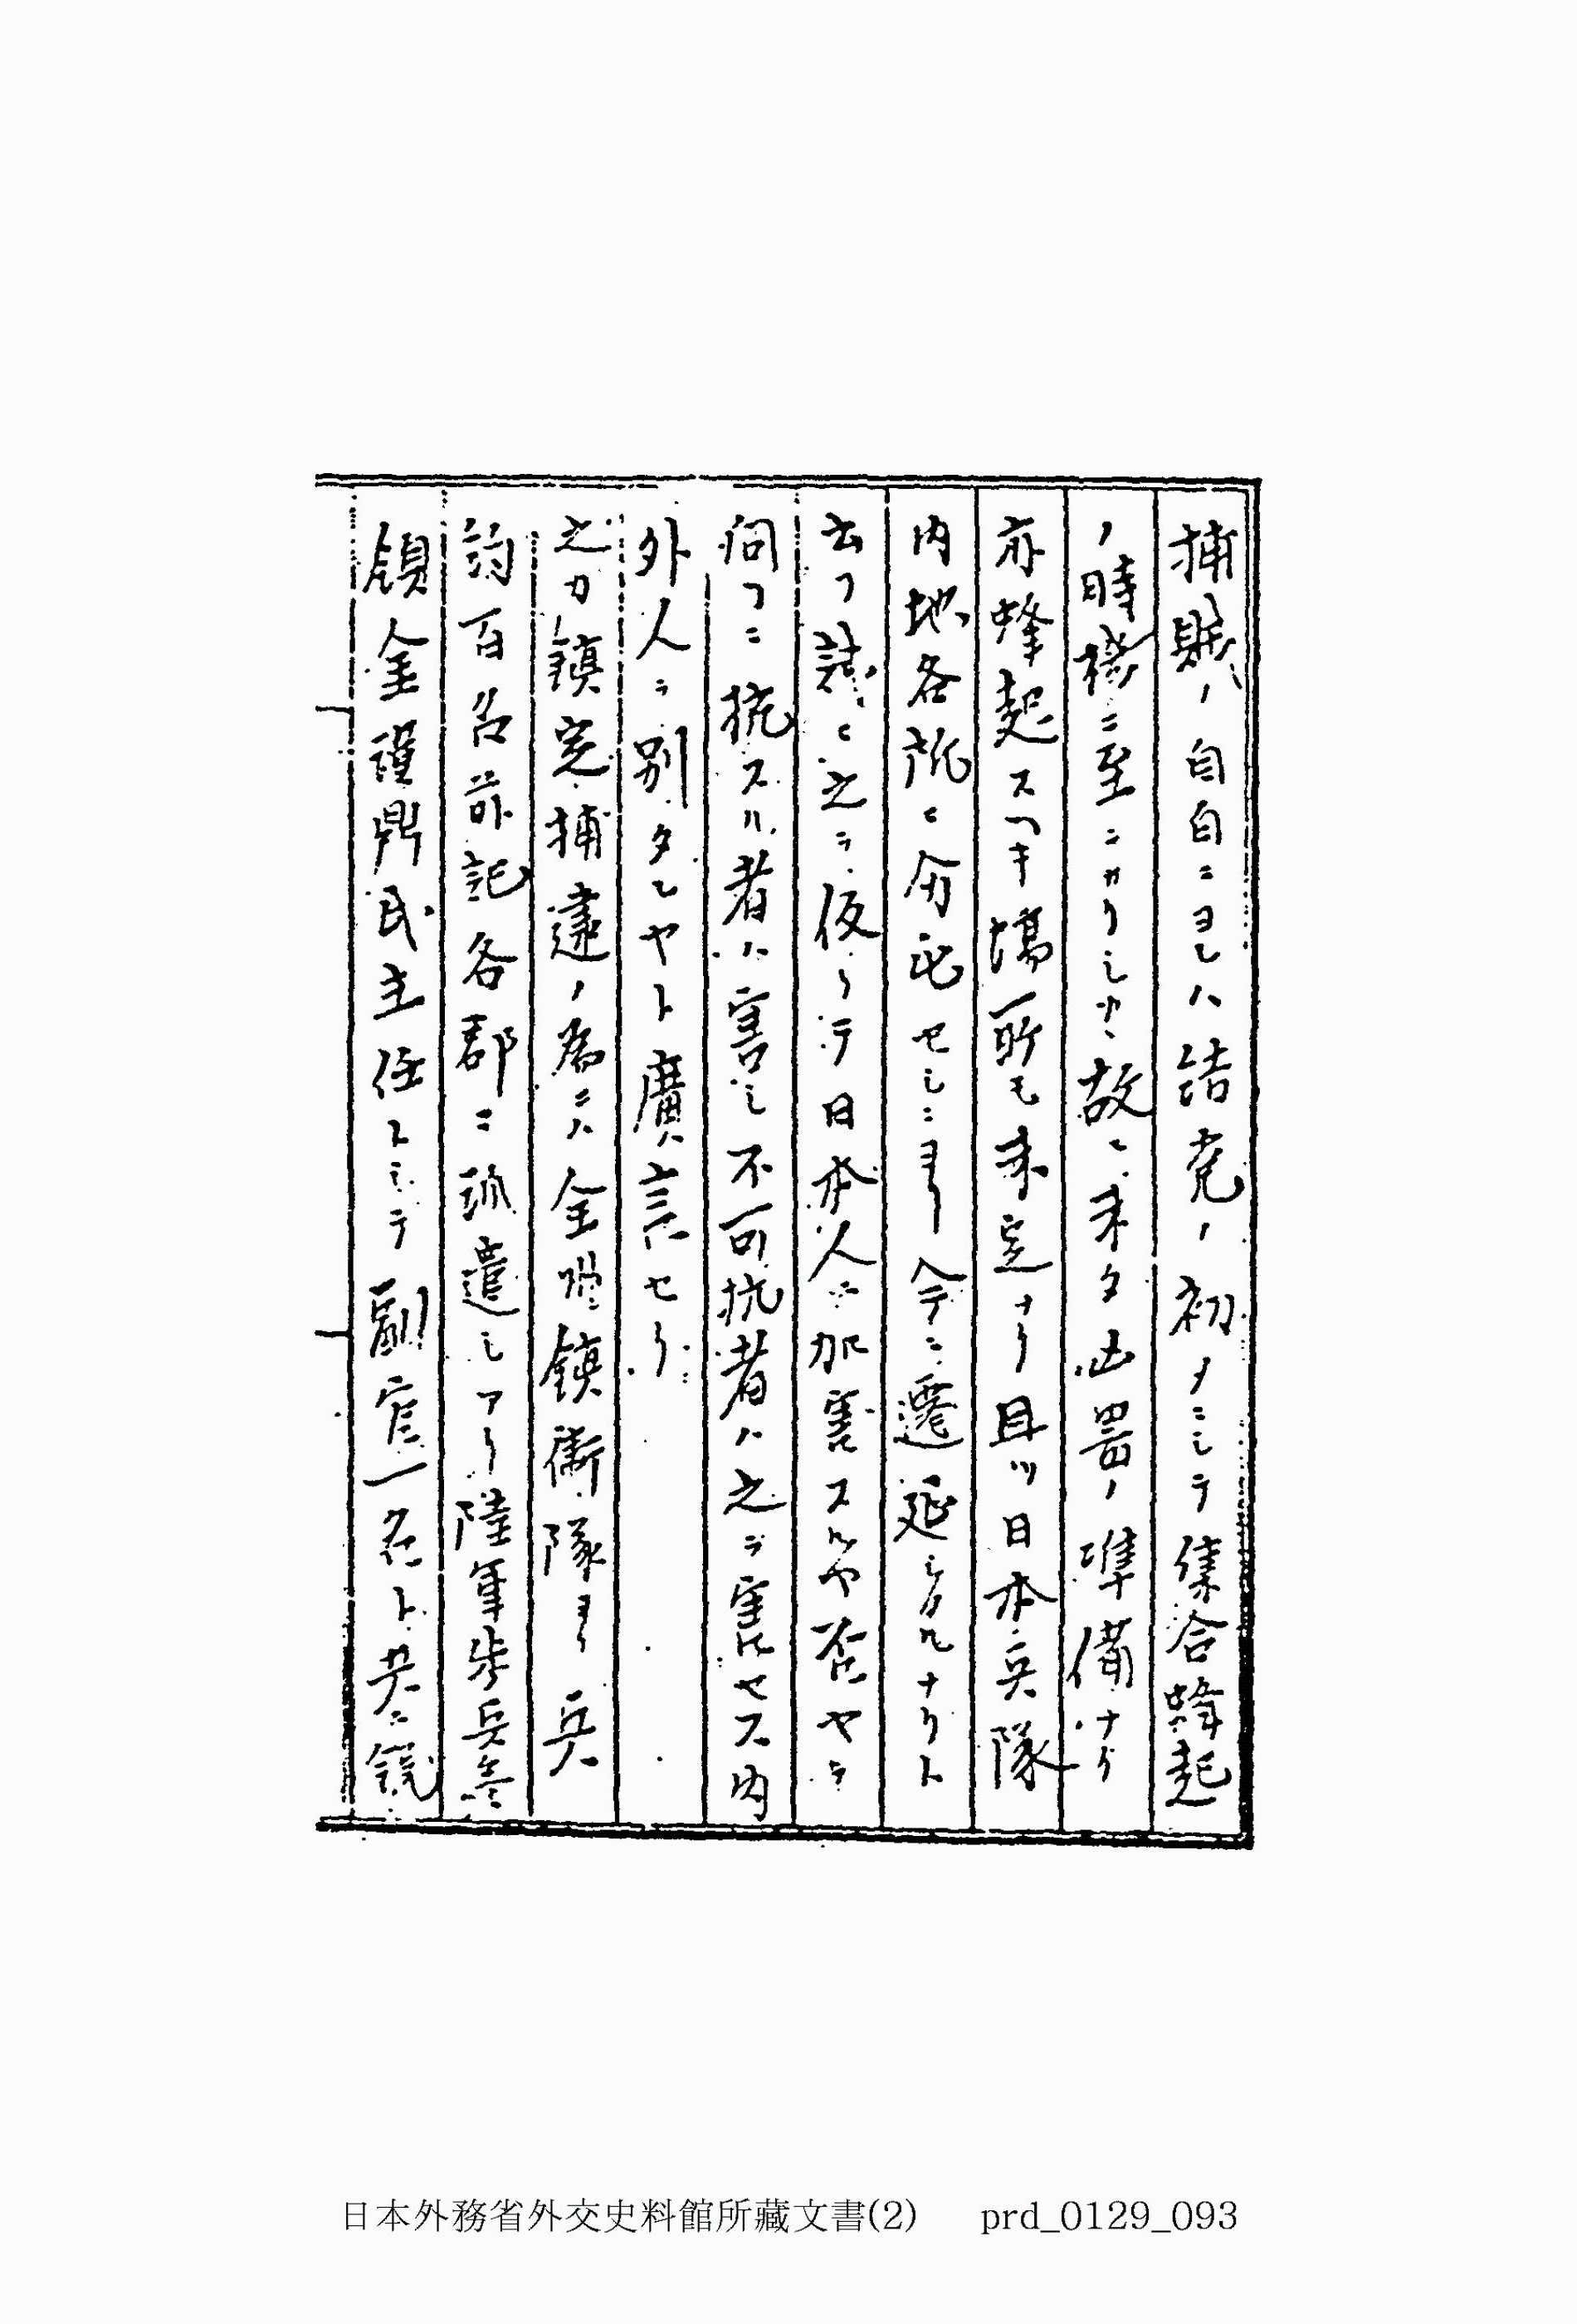 捕賊ノ自白ニヨレハ結党ノ初メニシテ集合蜂起
ノ時機ニ至ニカリシカ故ニ未タ凶器ノ準備ナク
亦蜂起スヘキ場所モ未定ナリ且ツ日本兵隊
内地各所ニ分屯セシニヨリ今ニ遷延シタルナリト
云フ試ミニ之ヲ仮リテ日本人ニ加害スルヤ否ヤヲ
問フニ抗スル者ハ害シ不可抗者ハ之ヲ害セス内
外人ヲ別タレヤト廣言セリ
之カ鎮定捕逮ノ為ニハ全州鎮衛隊ヨリ兵
約百名前記各郡ニ派遣シアリ陸軍歩兵参
領金謹鼎氏主任トシテ副官一名ト共ニ鋭
日本外務省外交史料館所藏文書(2) prd_0129_093